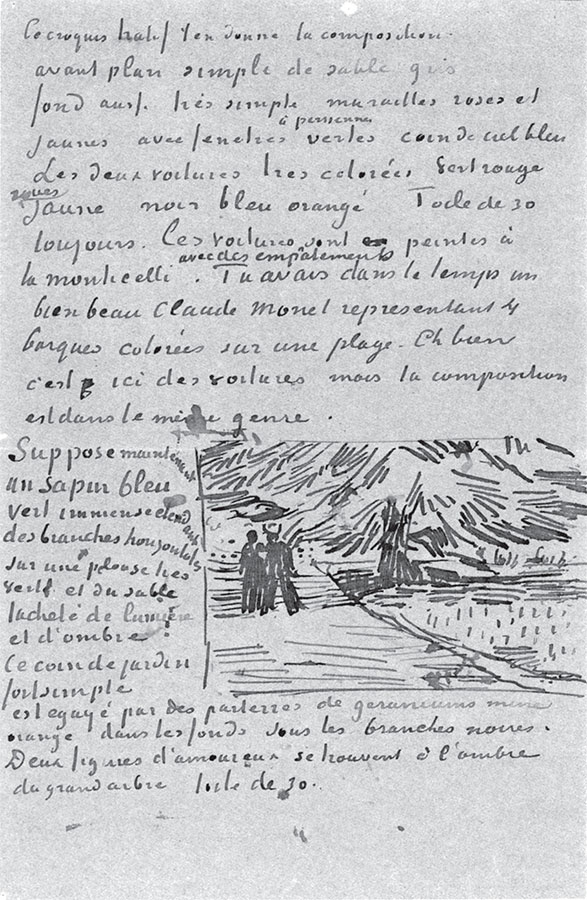 Le croquis hatif t'en donne la composition.
avant plan simple de sable gris
fond aussi très simple murailles roses et
jaunes avec fenetres à persiennes vertes coin de ciel bleu
Les deux voitures tres colorées Vert rouge
roues jaune noir bleu orangé Toile de 30
toujours. Les voitures sont peintes à
la monticelli avec des empâtements. Tu avais dans le temps un
bien beau Claude Monet representant 4
barques colorées sur une plage. Eh bien
c'est ici des voitures mais la composition
est dans le même genre.
Suppose maintenant
un sapin bleu
vert immense etendant
des branches horizontales
sur une pelouse très
verte et du sable
tacheté de lumière
et d'ombre
Ce coin de jardin
fort simple
est egayé par des parterres de geraniums mine
orange dans les fonds sous les branches noires.
Deux figures d'amoureux se trouvent à l'ombre
du grand arbre toile de 30.